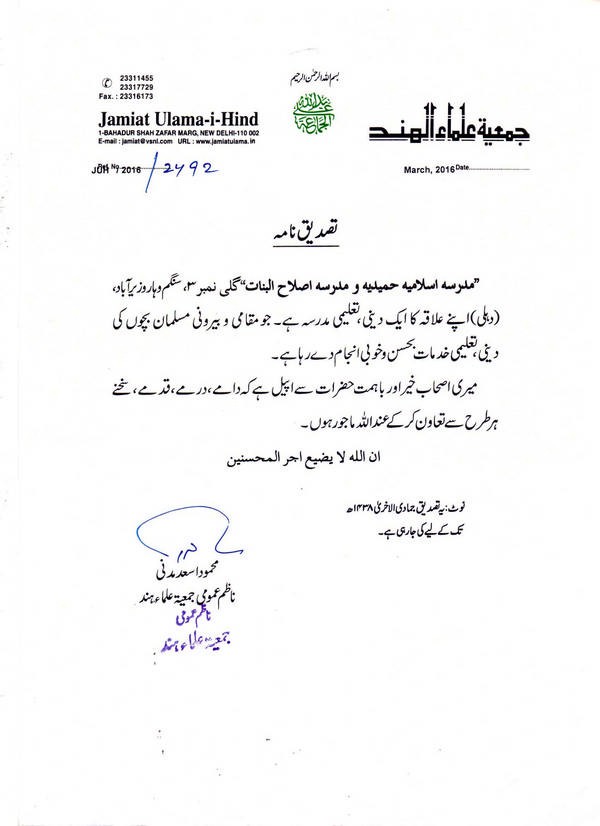 بسم اللہ الرحمٰن الرحیم
23311455
23317729
Fax. : 23316173
Jamiat Ulama-i-Hind
1-BAHADUR SHAH ZAFAR MARG, NEW DELHI-110 002
E-mail : jamiat@vsnl.com URL : www.jamiatulama.in
جمعية علماء الهند
2016 /2492
March, 2016 Date
تصدیق نامہ
”مدرسہ اسلامیہ حمیدیہ و مدرسہ اصلاح البنات“ گلی نمبر ۳، سنگم وہار وزیرآباد،
(دہلی) اپنے علاقہ کا ایک دینی، تعلیمی مدرسہ ہے۔ جو مقامی و بیرونی مسلمان بچوں کی
دینی، تعلیمی خدمات بحسن و خوبی انجام دے رہا ہے۔
میری اصحاب خیر اور باہمت حضرات سے اپیل ہے کہ دامے، درمے، قدمے، سخنے
ہر طرح سے تعاون کر کے عند اللہ ماجور ہوں۔
ان الله لا يضيع اجر المحسنين
نوٹ: یہ تصدیق جمادی الاخریٰ ۱۴۳۸ھ
تک کے لیے کی جارہی ہے۔
محمود اسعد مدنی
ناظم عمومی جمعیۃ علماء ہند
ناظم عمومی
جمعیۃ علماء ہند